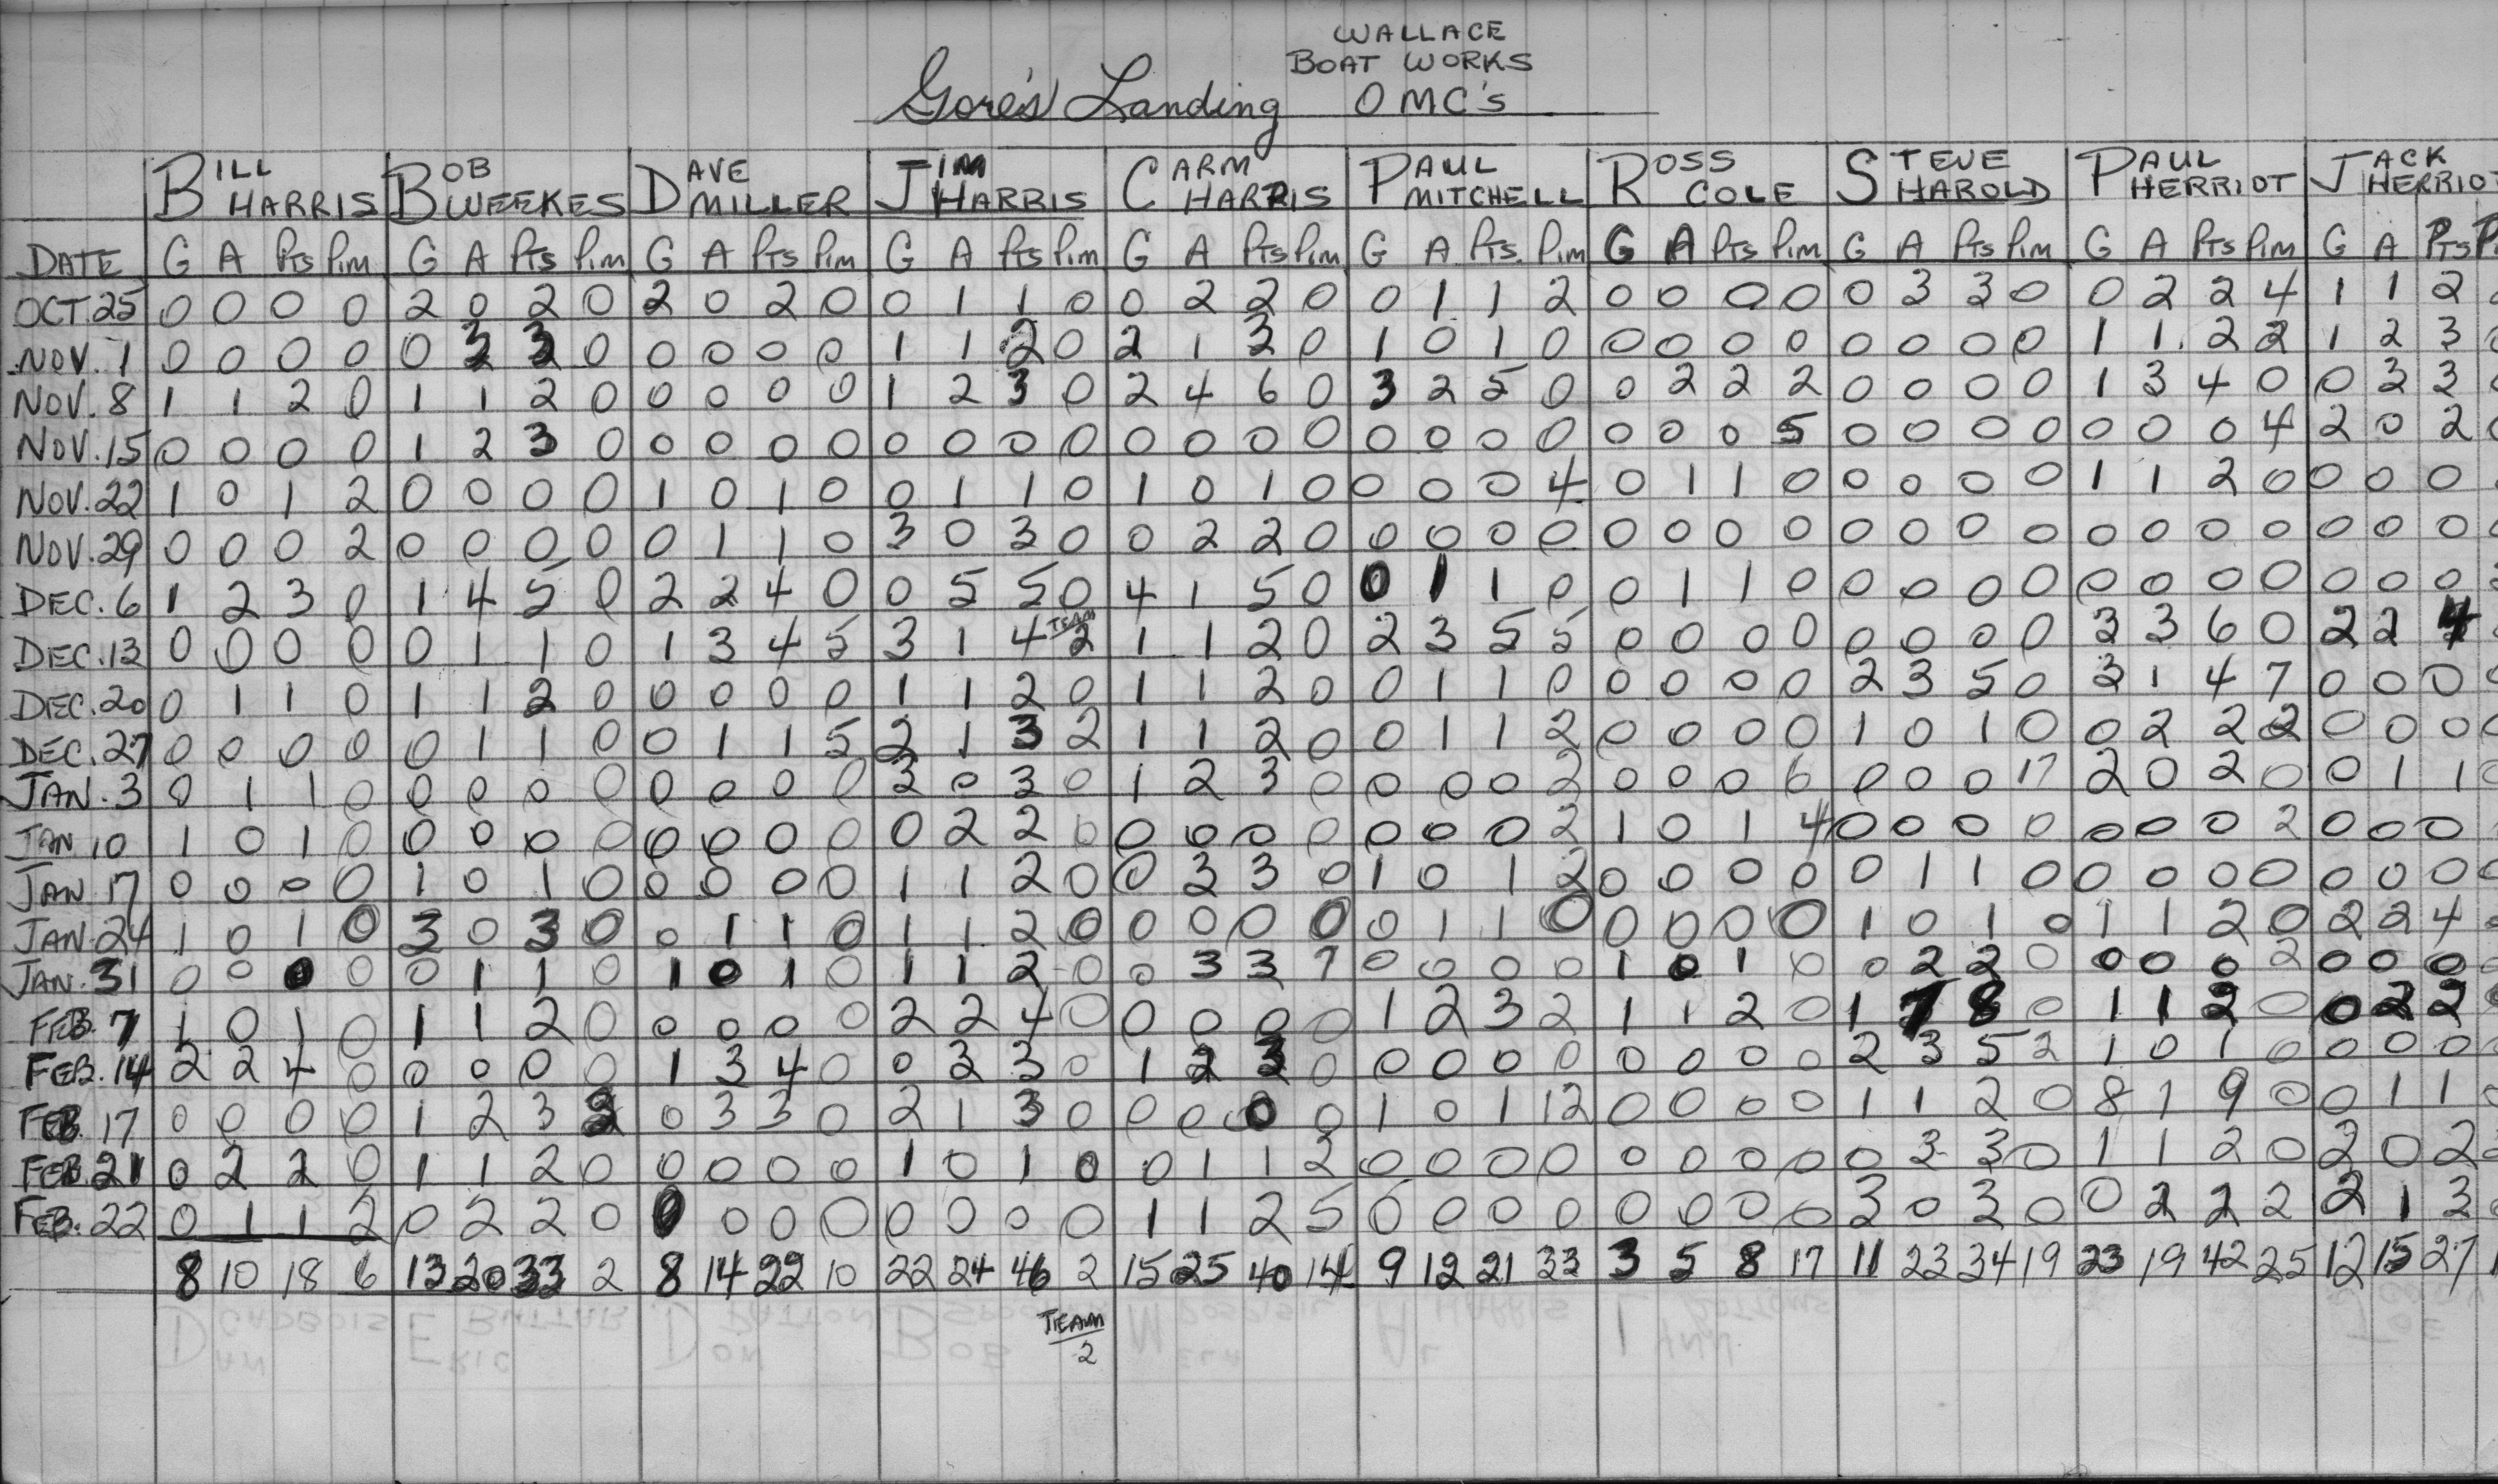 WALLACE
BOAT WORKS
Gore's Landing OMC's
BILL HARRIS BOB WEEKES DAVE MILLER JIM HARRIS CARM HARRIS PAUL MITCHELL ROSS COLE STEVE HAROLD PAUL HERRIOT JACK HERRIOT
DATE G A Pts Pim G A Pts Pim G A Pts Pim G A Pts Pim G A Pts Pim G A Pts. Pim G A Pts Pim G A Pts Pim G A Pts Pim G A Pts P
OCT. 25 0 0 0 0 2 0 2 0 2 0 2 0 0 1 1 0 0 2 2 0 0 1 1 2 0 0 0 0 0 3 3 0 0 2 2 4 1 1 2
NOV. 1 0 0 0 0 0 3 3 0 0 0 0 0 1 1 2 0 2 1 3 0 1 0 1 0 0 0 0 0 0 0 0 0 1 1 2 2 1 2 3
NOV. 8 1 1 2 0 1 1 2 0 0 0 0 0 1 2 3 0 2 4 6 0 3 2 5 0 0 2 2 2 0 0 0 0 1 3 4 0 0 3 3
NOV. 15 0 0 0 0 1 2 3 0 0 0 0 0 0 0 0 0 0 0 0 0 0 0 0 0 0 0 0 5 0 0 0 0 0 0 0 4 2 0 2
NOV. 22 1 0 1 2 0 0 0 0 1 0 1 0 0 1 1 0 1 0 1 0 0 0 0 4 0 1 1 0 0 0 0 0 1 1 2 0 0 0 0
NOV. 29 0 0 0 2 0 0 0 0 0 1 1 0 3 0 3 0 0 2 2 0 0 0 0 0 0 0 0 0 0 0 0 0 0 0 0 0 0 0 0
DEC. 6 1 2 3 0 1 4 5 0 2 2 4 0 0 5 5 0 4 1 5 0 0 1 1 0 0 1 1 0 0 0 0 0 0 0 0 0 0 0 0
DEC. 13 0 0 0 0 0 1 1 0 1 3 4 5 3 1 4 TEAM 2 1 1 2 0 2 3 5 5 0 0 0 0 0 0 0 0 3 3 6 0 2 2 4
DEC. 20 0 1 1 0 1 1 2 0 0 0 0 0 1 1 2 0 1 1 2 0 0 1 1 0 0 0 0 0 2 3 5 0 3 1 4 7 0 0 0
DEC. 27 0 0 0 0 0 1 1 0 0 1 1 5 2 1 3 2 1 1 2 0 0 1 1 2 0 0 0 0 1 0 1 0 0 2 2 2 0 0 0
JAN. 3 0 1 1 0 0 0 0 0 0 0 0 0 3 0 3 0 1 2 3 0 0 0 0 2 0 0 0 6 0 0 0 17 2 0 2 0 0 1 1
JAN 10 1 0 1 0 0 0 0 0 0 0 0 0 0 2 2 0 0 0 0 0 0 0 0 2 1 0 1 4 0 0 0 0 0 0 0 2 0 0 0
JAN 17 0 0 0 0 1 0 1 0 0 0 0 0 1 1 2 0 0 3 3 0 1 0 1 2 0 0 0 0 0 1 1 0 0 0 0 0 0 0 0
JAN. 24 1 0 1 0 3 0 3 0 0 1 1 0 1 1 2 0 0 0 0 0 0 1 1 0 0 0 0 0 1 0 1 0 1 1 2 0 2 2 4
JAN. 31 0 0 0 0 0 1 1 0 1 0 1 0 1 1 2 0 0 3 3 7 0 0 0 0 1 0 1 0 0 2 2 0 0 0 0 2 0 0 0
FEB. 7 1 0 1 0 1 1 2 0 0 0 0 0 2 2 4 0 0 0 0 0 1 2 3 2 1 1 2 0 1 7 8 0 1 1 2 0 0 2 2
FEB. 14 2 2 4 0 0 0 0 0 1 3 4 0 0 3 3 0 1 2 3 0 0 0 0 0 0 0 0 0 2 3 5 2 1 0 1 0 0 0 0
FEB. 17 0 0 0 0 1 2 3 2 0 3 3 0 2 1 3 0 0 0 0 0 1 0 1 12 0 0 0 0 1 1 2 0 8 1 9 0 0 1 1
FEB. 21 0 2 2 0 1 1 2 0 0 0 0 0 1 0 1 0 0 1 1 2 0 0 0 0 0 0 0 0 0 3 3 0 1 1 2 0 2 0 2
FEB. 22 0 1 1 2 0 2 2 0 0 0 0 0 0 0 0 0 1 1 2 5 0 0 0 0 0 0 0 0 3 0 3 0 0 2 2 2 2 1 3
8 10 18 6 13 20 33 2 8 14 22 10 22 24 46 2 15 25 40 14 9 12 21 33 3 5 8 17 11 23 34 19 23 19 42 25 12 15 27
TEAM
2